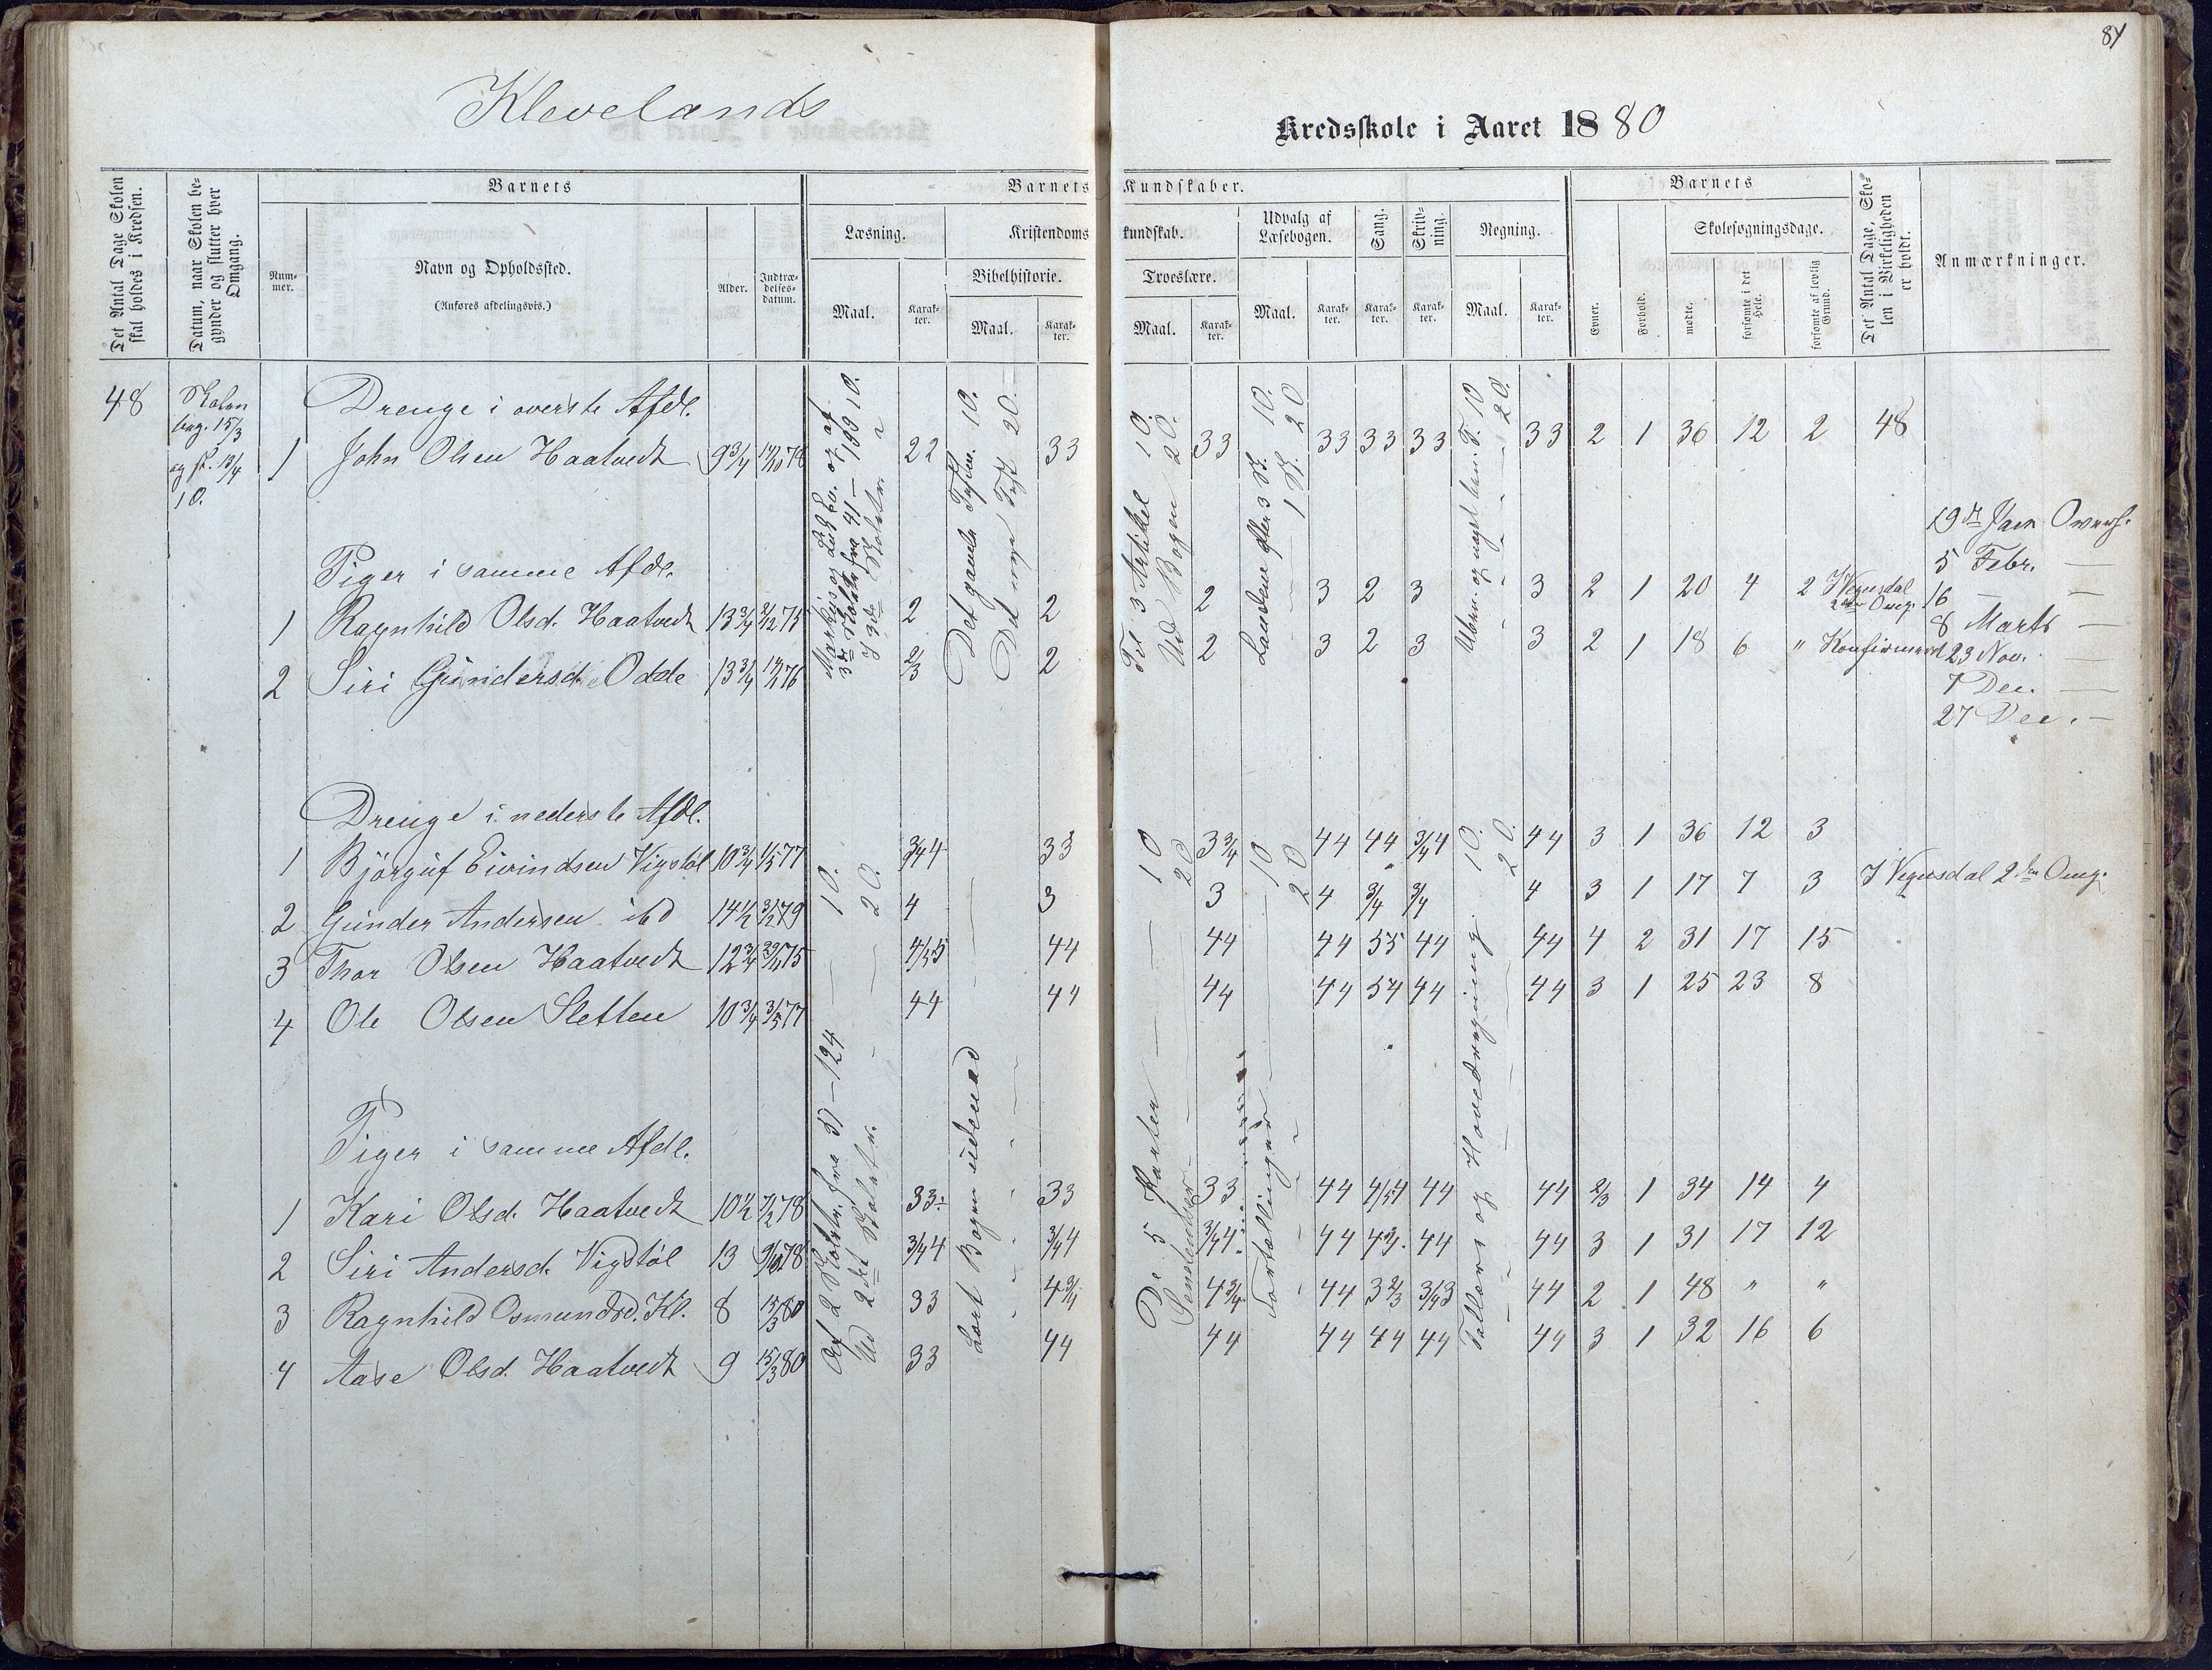 84
Klevelands
Kredsskole i Aaret 1880
Det Antal Dage Skolen skal holdes i Kredsen.
Datum, naar Skolen begynder og slutter hver Omgang.
Barnets
Nummer.
Navn og Opholdssted.
(Anføres afdelingsvis.)
Alder.
Indtrædelsesdatum.
Barnets Kundskaber.
Læsning.
Maal.
Karakter.
Kristendomskundskab.
Bibelhistorie.
Maal.
Karakter.
Troeslære.
Maal.
Karakter.
Udvalg af Læsebogen.
Maal.
Karakter.
Sang.
Karakter.
Skrivning.
Karakter.
Regning.
Maal.
Karakter.
Barnets
Evner.
Forhold.
Skolesøgningsdage.
mødte.
forsømte i det Hele.
forsømte af lovlig Grund.
Det Antal Dage, Skolen i Virkeligheden er holdt.
Anmærkninger.
48
Skolen
beg. 15/3
og sl. 13/4
10.
Drenge i øverste Afdl.
1 John Olsen Haatvedt 9 3/4 22 33 33 33 33 33 33 2 1 36 12 2 48
Piger i samme Afdl.
1 Ragnhild Olsd. Haatvedt 13 3/4 2 2 2 3 2 3 3 2 1 20 4 2 I Vegusdal 2den Omg.
2 Siri Gundersd. Odde 13 3/4 2/3 2 2 3 2 3 3 2 1 18 6 " Konfirmert
19de Jan Oversk.
5 Febr. —
16 — —
8 Marts —
23 Nov. —
7 Dec. —
27 Dec. —
Drenge i nederste Afdl.
1 Bjørguf Eivindsen Vigstøl 10 3/4 1/5 77 3/4 4 33 3 3/4 44 44 3/4 4 44 3 1 36 12 3
2 Gunder Andersen ibd 14 1/2 4 3 3 4 3/4 3/4 4 3 1 17 7 3 I Vegusdal 2den Omg.
3 Thor Olsen Haatvedt 12 3/4 4/5 5 44 44 44 55 44 44 4 2 31 17 15
4 Ole Olsen Sletten 10 3/4 3/5 77 44 44 44 44 54 44 44 3 1 25 23 8
Piger i samme Afdl.
1 Kari Olsd. Haatvedt 10 1/2 7/2 78 33 33 33 44 4/5 4 44 44 2/3 1 34 14 4
2 Siri Andersd. Vigstøl 13 9/10 78 3/4 4 3/4 4 3/4 4 44 4 3/4 44 44 3 1 31 17 12
3 Ragnhild Osmundsd. Kl. 8 15/3 80 33 4 3/4 4 3/4 44 3 2/3 3/4 3 44 2 1 48 " "
4 Aase Olsd. Haatvedt 9 15/3 80 33 44 44 44 44 44 44 3 1 32 16 6
Det gamle Testm. 10.
Det nye Test 20.
Til 3 Artikkel 10.
Ud Bogen 20.
Landene efter 3 St. 10.
1 St. 20
Af 2 Skoletr. fra 57 — 124 — 10.
Ud 2det Skoletr. — 20.
Lært Bogen udenad
De 5 Parter — 10
Sendendser — 20
Fortællinger — 10
20
Tallære og Hovedregning 10.
20.